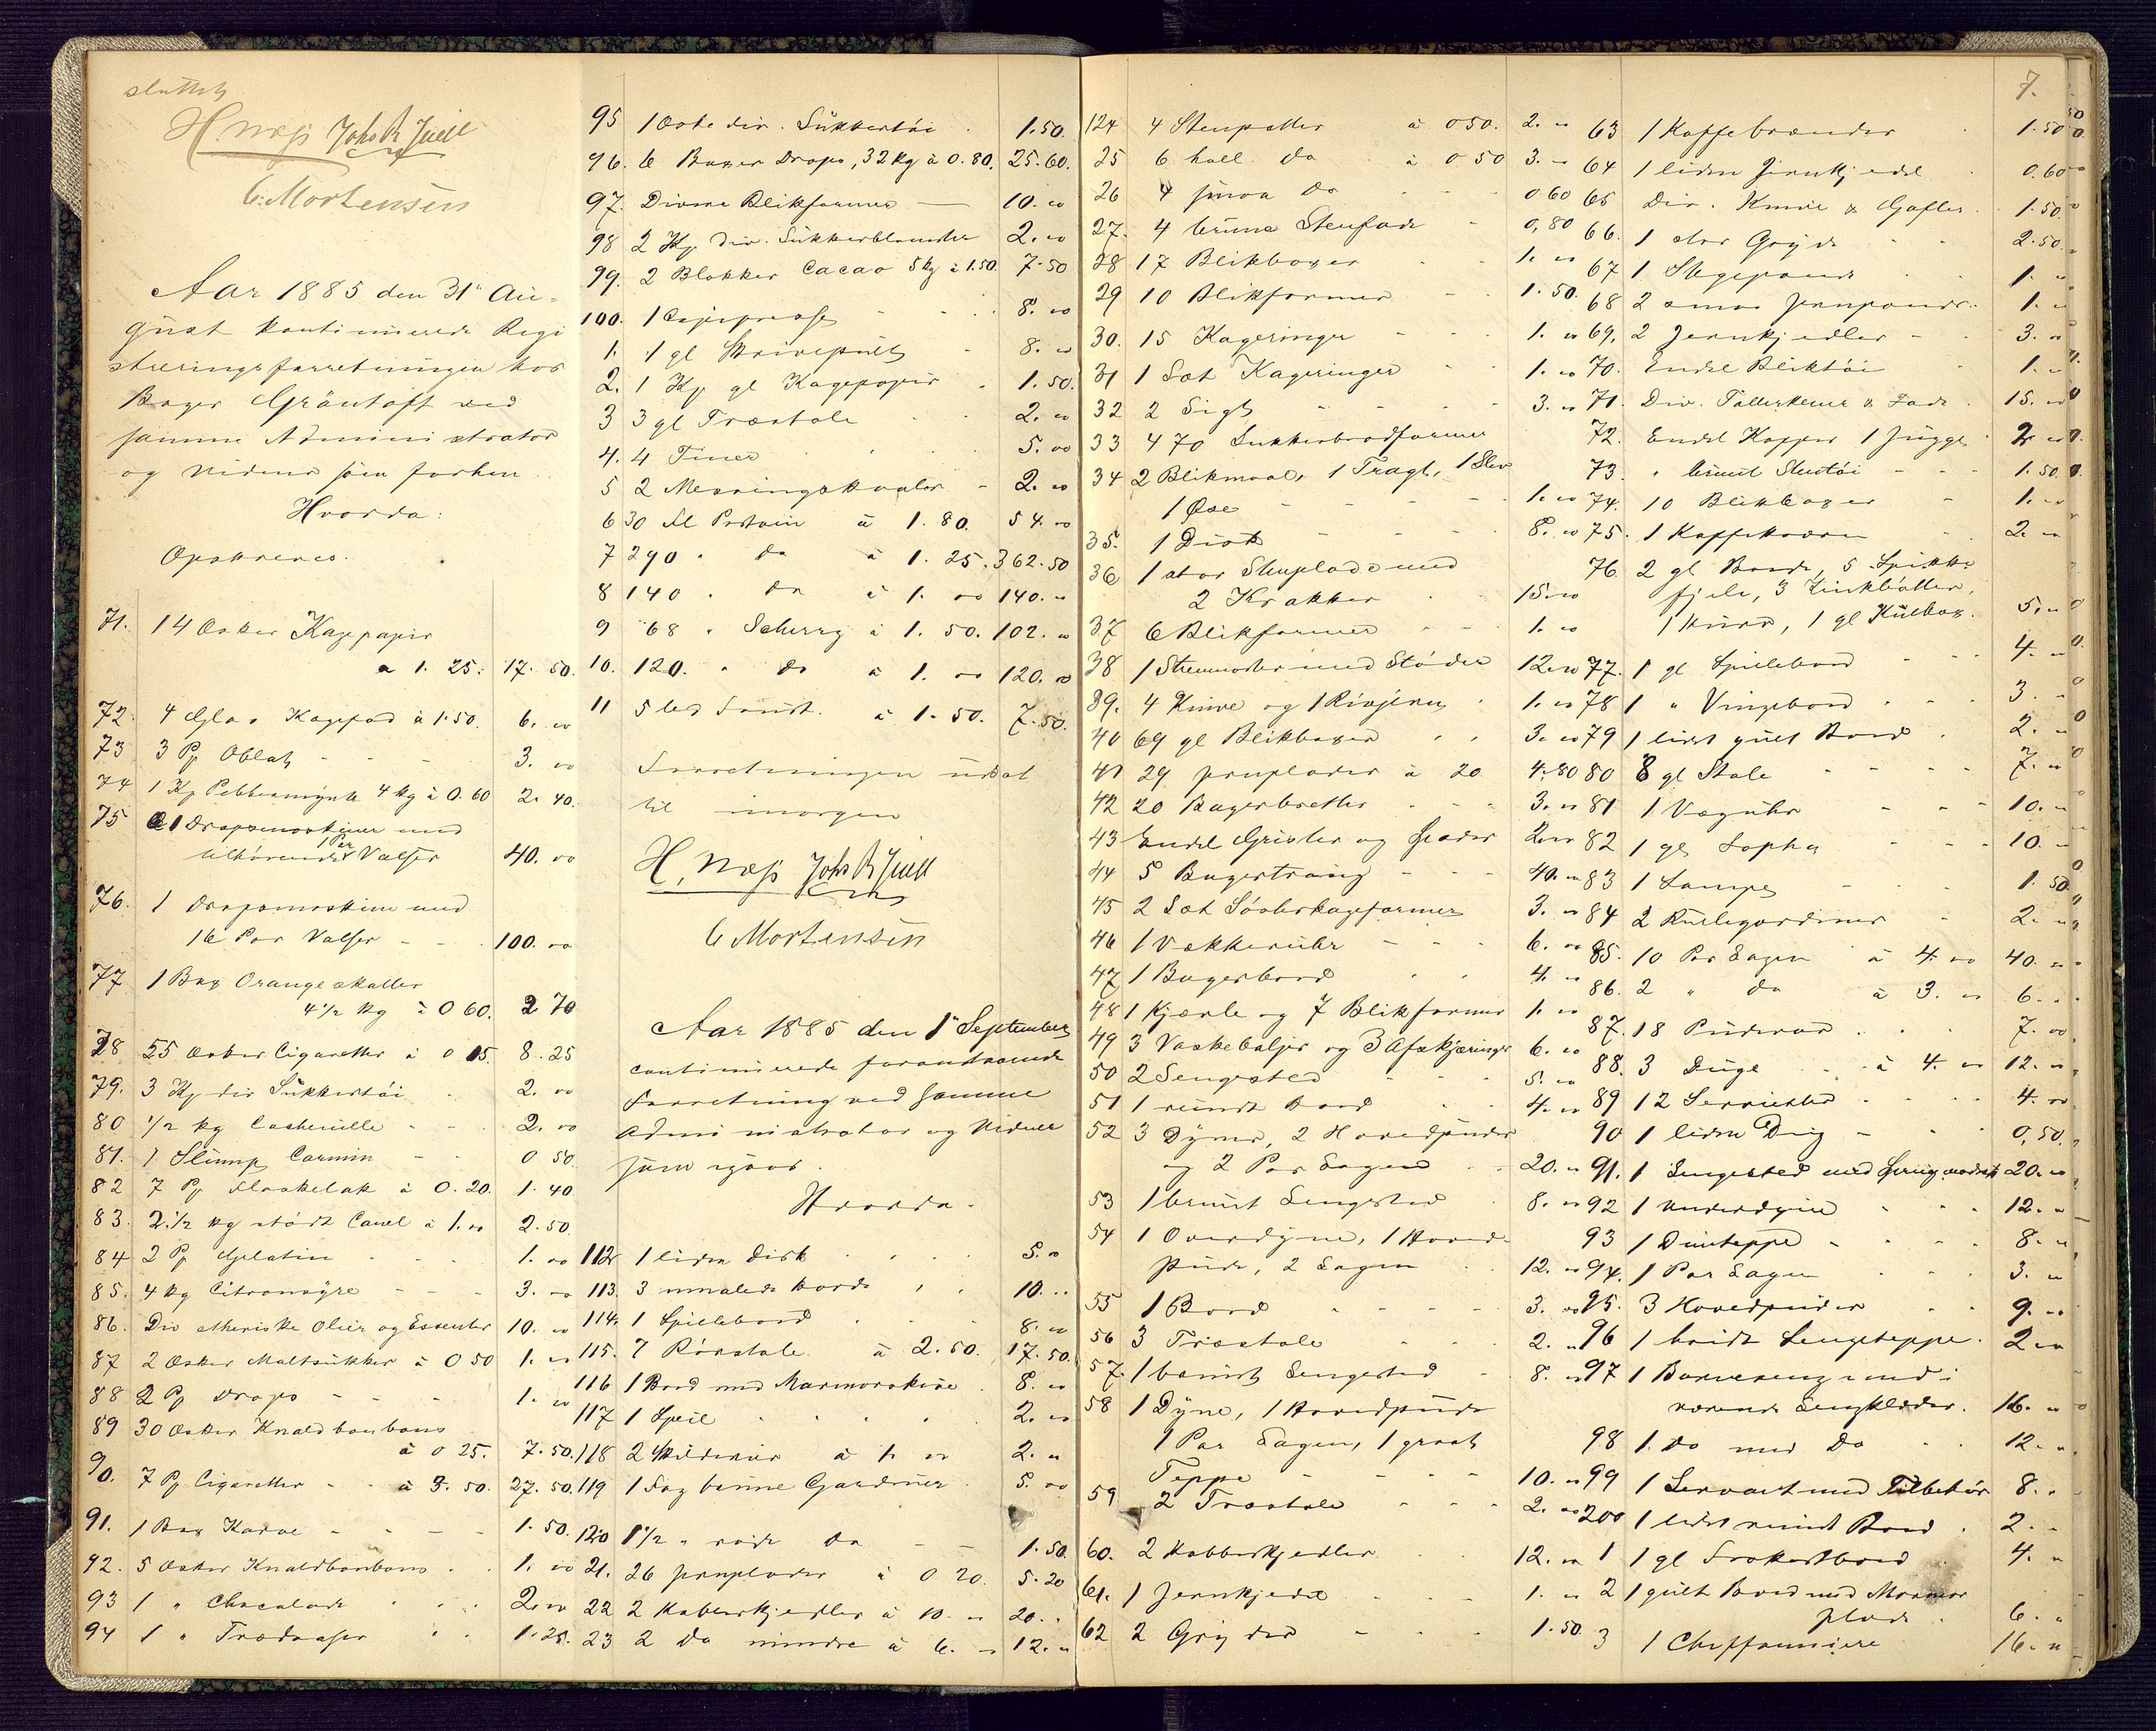 sluttet
H. Næss Johs B Juell
C. Mortensen
Aar 1885 den 31te Au-
gust kontinuerede Regi
streringsforretningen hos
Bager Gräntoft ved
samme Administrator
og Vidner som forhen
Hvorda:
Opskreves.
71. 14 Æsker Kagepapir
a 1.25. 17.50.
72. 4 Glas Kagefad à 1.50. 6. 00
73 3 Pk Oblat - - - 3. 00
74 1 Kg Pebbermynte 4 kg à 0.60 2.40.
75 1 Dropsmaskiner med
tilhørende 1 Par Valser 40. 00
76. 1 Dropsmaskine med
16 Par Valser - - 100. 00
77 1 Bax Orangeskaller
4 1/2 kg à 0 60. 2 70
78 55 Æsker Cigaretter à 0 15. 8.25
79. 3 Kg div Sukkertöi 2. 00
80 1/2 kg Cochenille - - 2. 00
81. 1 Slump Carmin - - 0 50
82 7 Pk Flaskelak à 0.20. 1.40
83. 2 1/2 kg stödt Canel à 1. 00 2.50
84 2 Pk Gelatin - - 1. 00
85. 4 kg Citronsyre - - 3. 00
86. Div etheriske Olier og Essenter 10. 00
87 2 Æsker Maltsukker à 0 50 1. 00
88 2 Pk Drops - - - 1. 00
89 30 Æsker Knaldbonbons
à 0 25. 7.50.
90. 7 Pk Cigaretter - - à 3.50. 27.50.
91. 1 Bax Karve - - - 1.50.
92. 5 Æsker Knaldbonbons . . 1. 00
93 1 " Chocolade . . . 2. 00
94 1 " Trædaaser . . 1.25.
95 1 Æske div. Sukkertöi . 1.50.
96. 6 Baxer Drops, 32 kg à 0.80. 25.60.
97. Diverse Blikformer — 10. 00
98 2 Kg div. Sukkerblomster 2. 00
99. 2 Blokker Cacao 5 kg à 1.50. 7.50
100. 1 Copipresse - - 8. 00
1. 1 gl Skrivepult - 8. 00
2. 1 Kg gl Kagepapir . 1.50.
3 3 gl Træstole . . 2. 00
4. 4 Tiner . . . 5. 00
5 2 Messingskaaler - 2. 00
6 30 Fl Portvin à 1.80. 54. 00
7 290 " do à 1.25. 362.50
8 140 " do à 1. 00 140. 00
9 68 " Scherry à 1.50. 102. 00
10. 120. " do à 1. 00 120. 00
11 5 à 1.50. 7.50.
Forretningen udsat
til imorgen
H. Næss Johs B Juell
C Mortensen
Aar 1885 den 1te September
continuerede foranstaaende
Forretning ved samme
Administrator og Vidner
som igaar.
Hvorda.
112 1 liden Disk . . . 5. 00
113. 3 umalede Borde . . 10. 00
114. 1 Spillebord . . . 8. 00
115. 7 Rörstole à 2.50. 17.50.
116 1 Bord med Marmorskive . 8. 00
117 1 Speil . . . . 2. 00
118 2 Skilderier à 1. 00 2. 00
119 1 Fag brune Gardiner . 5. 00
120 1 1/2 " röde do - - 1.50.
21. 26 Jernplader à 0 20. 5.20
22 2 Kobberkjedler à 10. 00 20. 00
23 2 do mindre à 6. 00 12. 00
7.
124 4 Stenpotter à 0 50. 2. 00
25 6 holl. do à 0 50 3. 00
26 4 smaa do - - 0 60
27. 4 brune Stenfade - 0,80
28 17 Blikboxer - 1. 00
29 10 Blikformer - - 1.50.
30. 15 Kageringer - - - 1. 00
31 1 Sæt Kageringer - - 1. 00
32 2 Sigt - - - - 3. 00
33 4 70 Sukkerbrödformer
34 2 Blikmaal, 1 Tragt, 1 Slev
1 Øse - - - - 1. 00
35. 1 Disk - - - 8. 00
36 1 stor med
2 Krakker . . 15. 00
37 6 Blikformer - - - 1. 00
38 1 Stenmorter med Stöder 12. 00
39. 4 Knive og 1 Rivjern 1. 00
40 69 gl Blikboxer . . 3. 00
41 24 Jernplader à 20 4.80
42 20 Bagerbretter . - - 3. 00
43 Endel Grisler og Spader 2. 00
44 5 Bagertraug - - - 40. 00
45 2 Sæt Sösterkageformer 3. 00
46 1 Vækkeruhr - - - 6. 00
47 1 Bagerbord . . 4. 00
48 1 Kjærle og 7 Blikformer 1. 00
49 3 Vaskebaljer og 3 Afskjæringer 6. 00
50 2 Sengested - - - 5. 00
51 1 rundt Bord . . 4. 00
52 3 Dyner, 2 Hovedpuder
og 2 Par Lagen . . 20. 00
53 1 brunt Sengested . 8. 00
54 1 Overdyne, 1 Hoved-
pude, 2 Lagen . . 12. 00
55 1 Bord - - - - 3. 00
56 3 Træstole - - - 2. 00
57. 1 brunt Sengested - 8. 00
58 1 Dyne, 1 Hovedpude
1 Par Lagen, 1 graat
Teppe - - - - 10. 00
59 2 Træstole - - - 2. 00
60. 2 Kobberkjedler . . 12. 00
61. 1 Jernkjedel - . . 1. 00
62 2 Gryder - - 1.50
63 1 Kaffebrænder . 1.50
64 1 liden Jernkjedel . 0.60
65 Div. Knive & Gafler . 1.50.
66. 1 stor Gryde - - 2.50.
67 1 Stegepande . . 1. 00
68 2 smaa Jernpander . 1. 00
69. 2 Jernkjedler - - 3. 00
70. Endel Bliktöi - 1. 00
71. Div. Tallerkener & Fade . 15. 00
72. Endel Kopper 1 Jugge . 2. 00
73. " brunt Stentöi - - - 1.50.
74. 10 Blikboxer - 1. 00
75. 1 Kaffekværn - 2. 00
76. 2 gl Borde, 5
fjele, 3 Zinkbötter,
1 Kurv, 1 gl Kulbox. 5. 00
77. 1 gl Spillebord - - - 4. 00
78 1 " Vingebord . . . 3. 00
79 1 lidet gult Bord . 2. 00
80 8 gl Stole - - - - 7. 00
81 1 Væguhr - - - 10. 00
82 1 gl Sopha - - - 10. 00
83 1 Lampe - - - 1.50.
84 2 Rullegardiner - 2. 00
85. 10 Par Lagen à 4. 00 40. 00
86. 2 " do à 3. 00 6. 00
87. 18 Pudevar . . . 7. 00
88. 3 Duge . . à 4. 00 12. 00
89 12 Servietter . . . . 4. 00
90 1 liden Dug - . . 0,50.
91. 1 Sengested med 20. 00
92 1 Underdyne . . . 12. 00
93 1 Duntæppe - . . . 8. 00
94. 1 Par Lagen . . . 3. 00
95. 3 Hovedpuder . . 9. 00
96 1 hvidt Sengeteppe. 2. 00
97 1 Barneseng med i
værende Sengklæder. 16. 00
98 1. do med do . . 12. 00
99 1 Servant med Tilbehör 8. 00
200 1 lidet rundt Bord . 2. 00
1 1 gl Frokostbord . 4. 00
2 1 gult Bord med Marmor
plade . 6. 00
3 1 Cheffonniere 16. 00